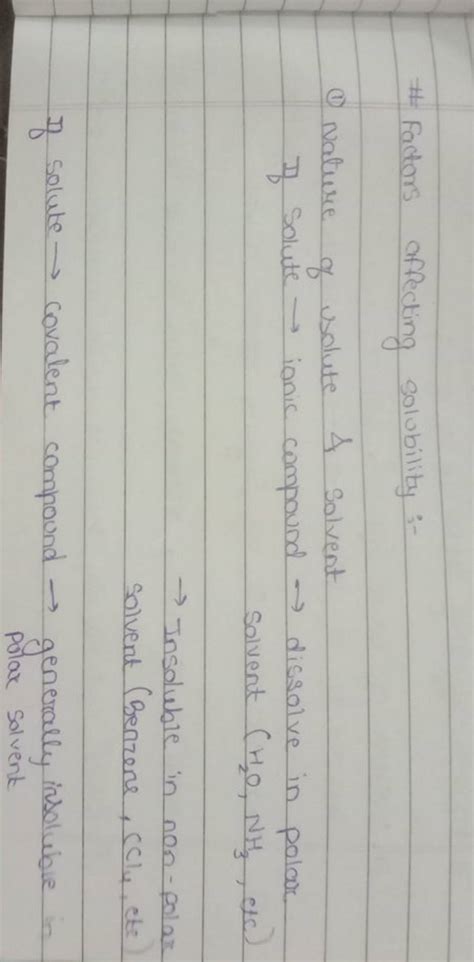 # Factors affecting solubility :-
① Nature of solute & solvent
If solute → ionic compound → dissolve in polar
solvent (H₂O, NH₃, etc)
→ Insoluble in non-polar
solvent (Benzene, CCl₄, etc)
If solute → covalent compound → generally insoluble in
polar solvent